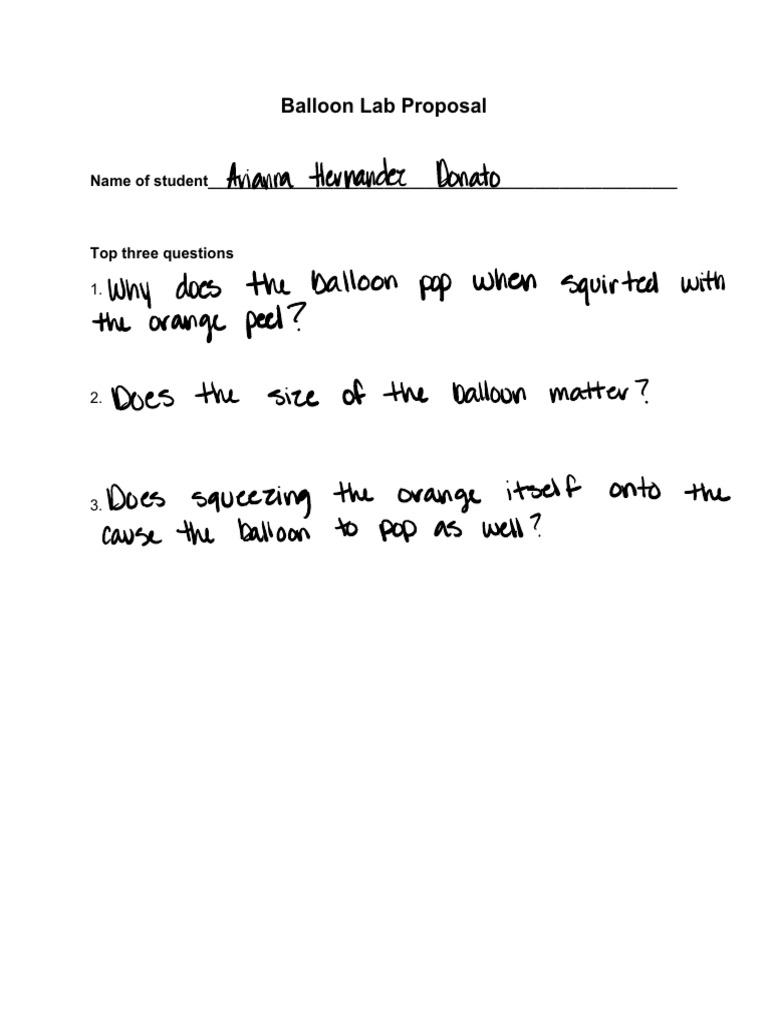 Balloon Lab Proposal
Name of student Arianna Hernandez Donato
Top three questions
1. Why does the balloon pop when squirted with
the orange peel?
2. Does the size of the balloon matter?
3. Does squeezing the orange itself onto the
cause the balloon to pop as well?